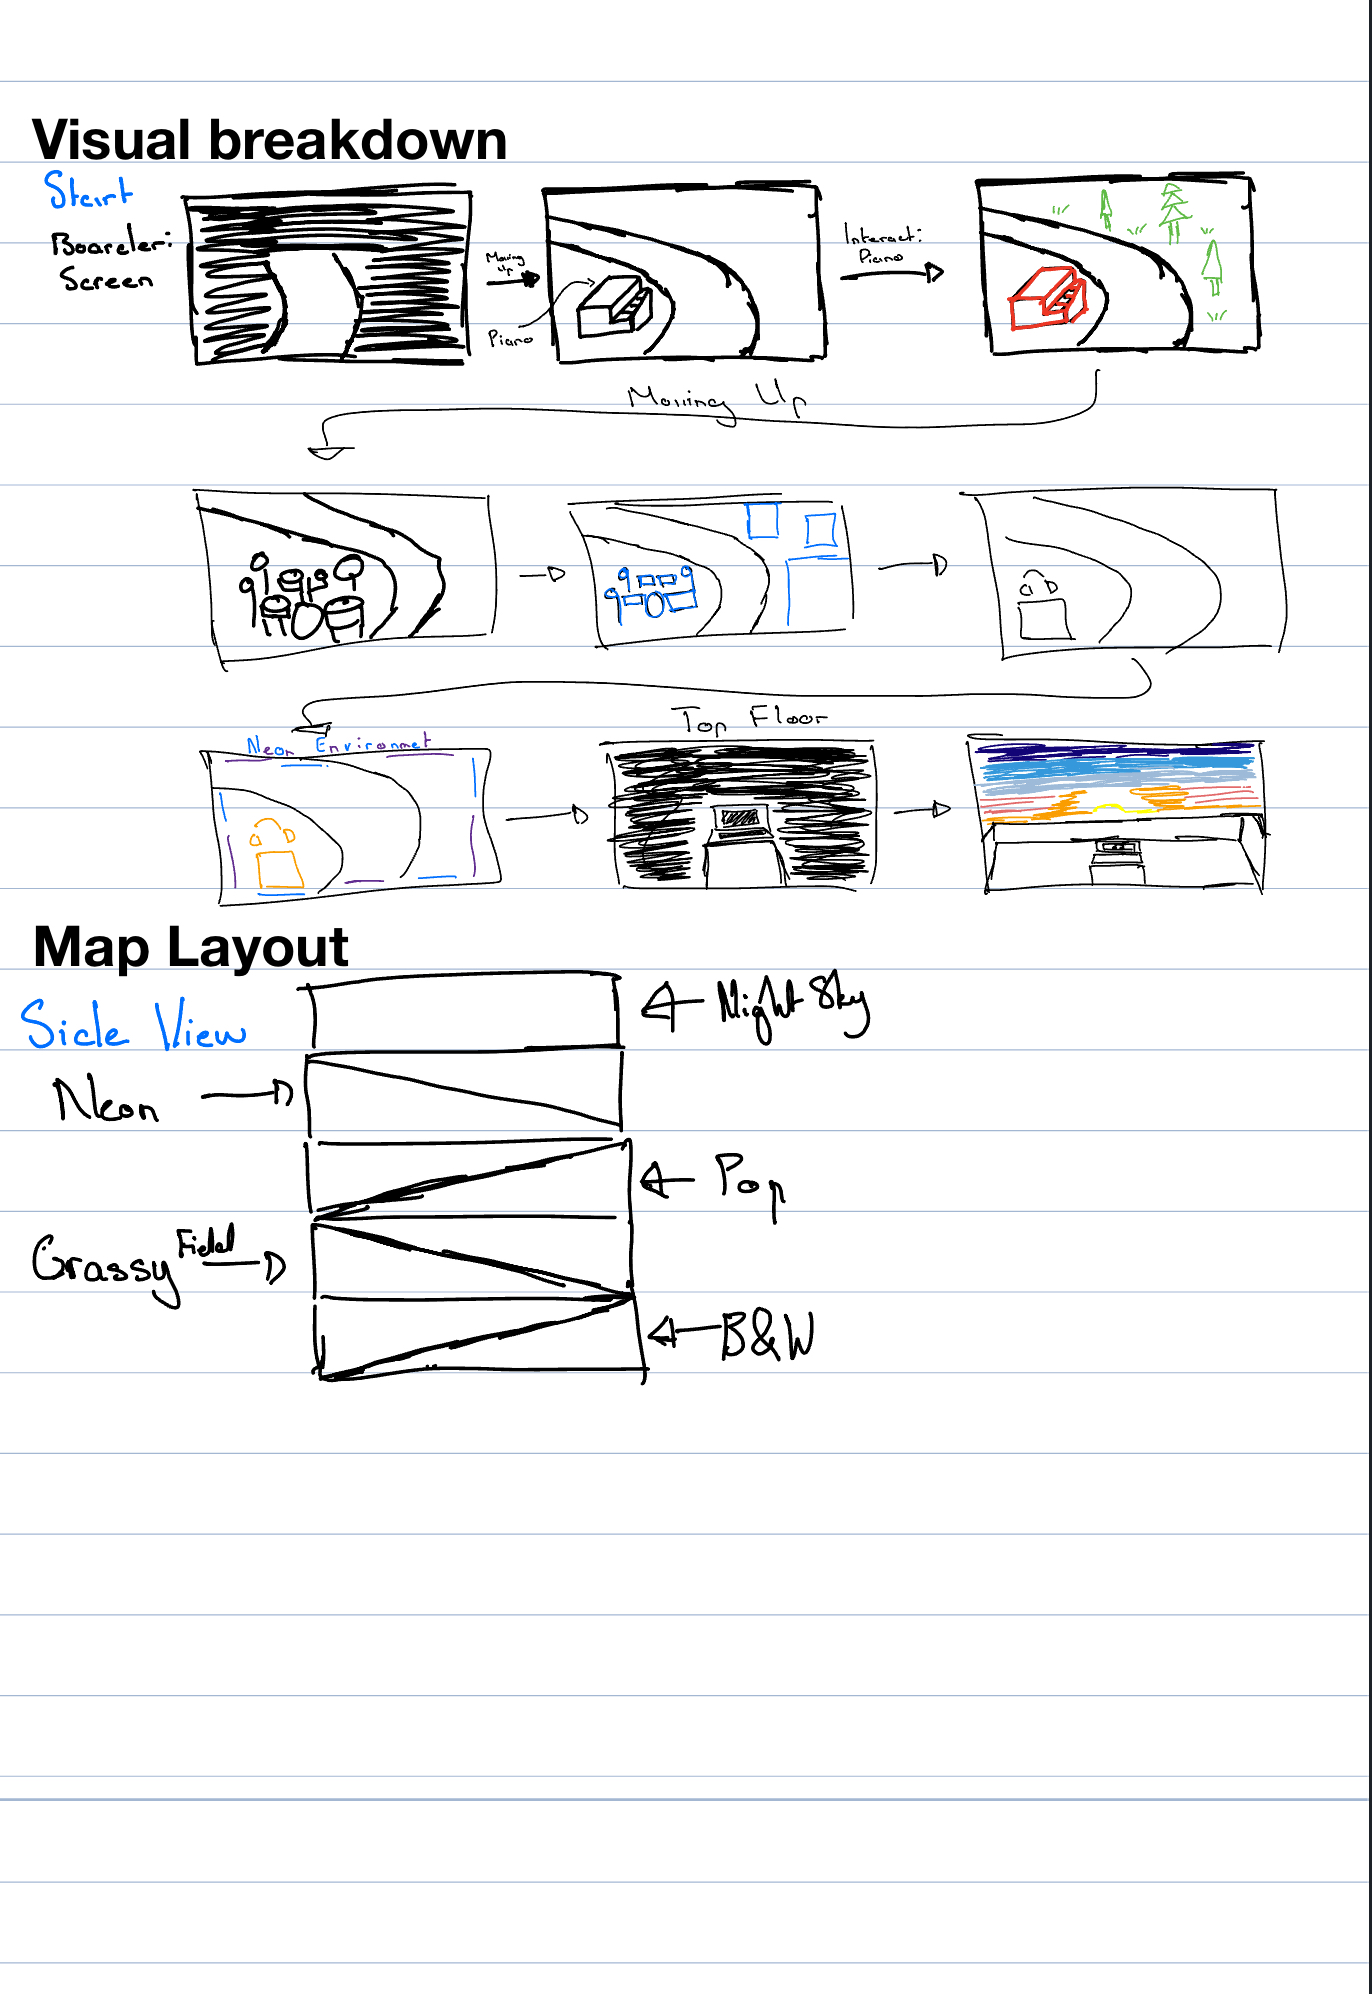 Visual breakdown
Start
Boarder:
Screen
Moving
Up
Piano
Interact:
Piano
Moving Up
Neon Environmet
Top Floor
Map Layout
Side View
Night Sky
Neon
Pop
Grassy Field
B&W